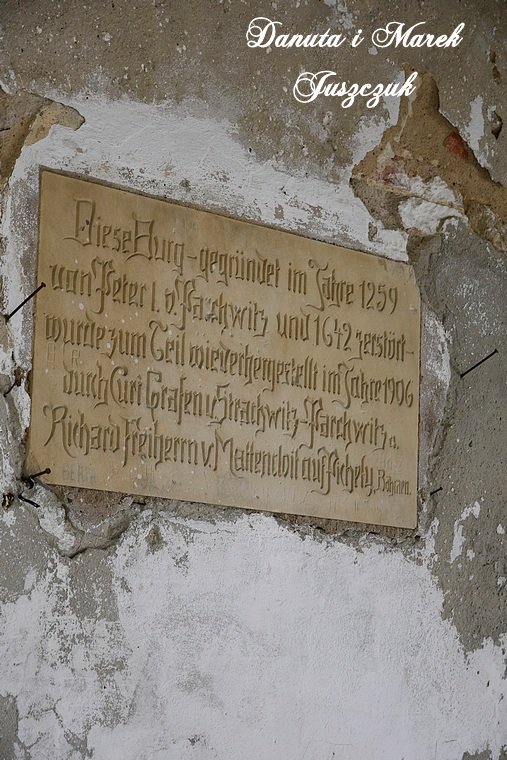 Danuta i Marek
Juszczuk
Diese Burg - gegründet im Jahre 1259
von Peter I. v. Parchwitz und 1642 zerstört -
wurde zum Teil wiederhergestellt im Jahre 1906
durch Curt Grafen v. Strachwitz-Parchwitz u.
Richard Freiherrn v. Mattencloit auf